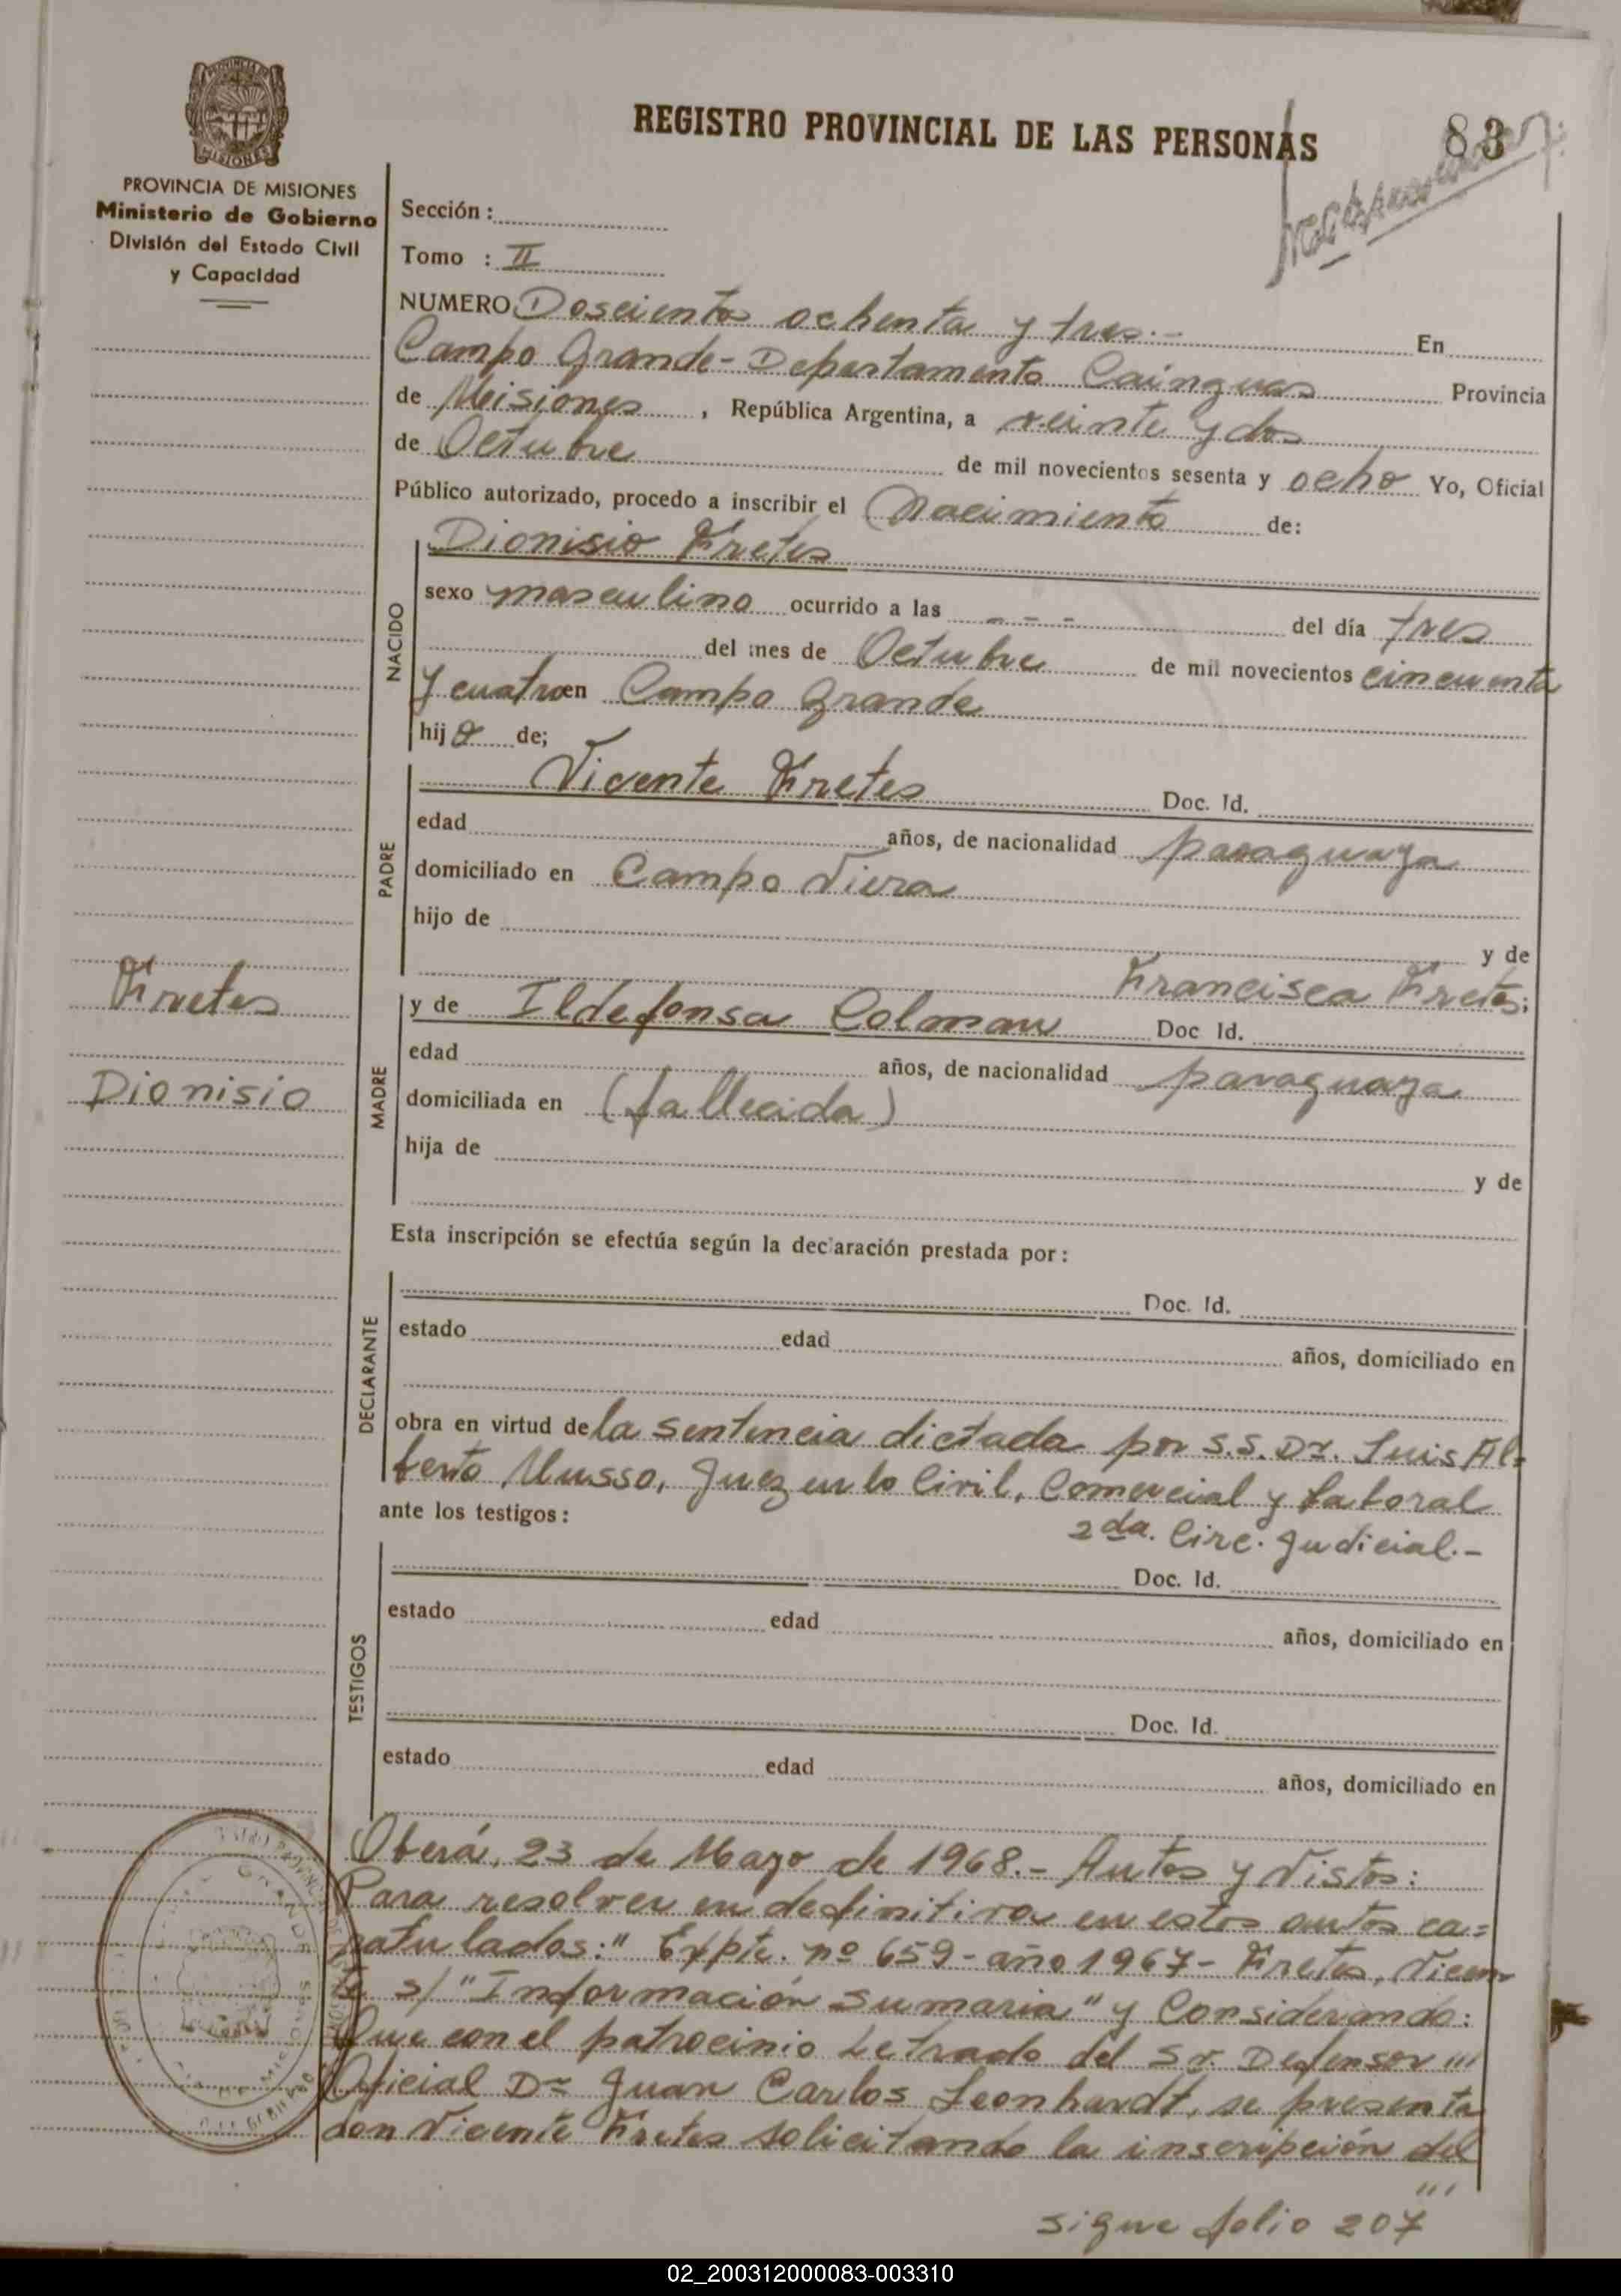 REGISTRO PROVINCIAL DE LAS PERSONAS
83
MISIONES
PROVINCIA DE MISIONES
Ministerio de Gobierno
División del Estado Civil
y Capacidad
Sección :
Tomo : II
NUMERO Doscientos ochenta y tres.- En
Campo Grande - Departamento Cainguas Provincia
de Misiones , República Argentina, a veinte y dos
de Octubre de mil novecientos sesenta y ocho Yo, Oficial
Público autorizado, procedo a inscribir el Nacimiento de:
NACIDO
Dionisio Fretes
sexo masculino ocurrido a las - - - del día tres
del mes de Octubre de mil novecientos cincuenta
y cuatro en Campo Grande
hijo de;
PADRE
Vicente Fretes Doc. Id.
edad años, de nacionalidad paraguaya
domiciliado en Campo Viera
hijo de y de
Francisca Fretes;
Fretes
Dionisio
MADRE
y de Ildefonsa Colman Doc Id.
edad años, de nacionalidad paraguaya
domiciliada en (fallecida)
hija de y de
Esta inscripción se efectúa según la declaración prestada por:
DECLARANTE
Doc. Id.
estado edad años, domiciliado en
obra en virtud de la sentencia dictada por S.S. Dr. Luis Al=
berto Musso, Juez en lo Civil, Comercial y Laboral
2da. Circ. Judicial.-
ante los testigos:
TESTIGOS
Doc. Id.
estado edad años, domiciliado en
Doc. Id.
estado edad años, domiciliado en
Oberá, 23 de Mayo de 1968.- Autos y Vistos:
Para resolver en definitiva en estos autos ca=
ratulados: " Expte. nº 659 - año 1967 - Fretes, Vicen
te s/ "Información sumaria" y Considerando:
Que con el patrocinio Letrado del Sr. Defensor ///
Oficial Dr Juan Carlos Leonhardt, se presenta
don Vicente Fretes solicitando la inscripción del
///
sigue folio 207
02_200312000083-003310